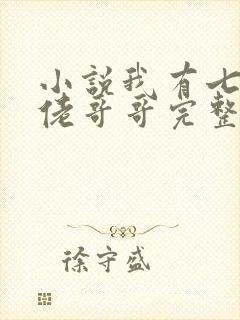 小說我有七
佬哥哥完整
徐守盛